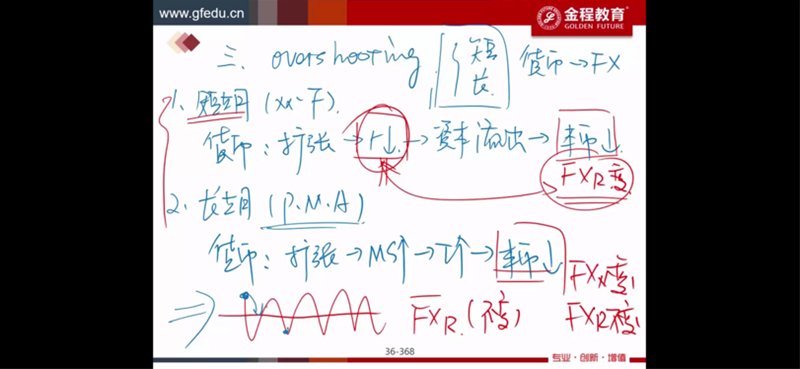 www.gfedu.cn
金程教育
GOLDEN FUTURE
三、overshooting { 短 长 货币→FX
1、短期 (M-F).
货币:扩张→r↓→资本流出→本币↓
FXR变
2、长期 (P.M.A)
货币:扩张→MS↑→π↑→本币↓
FXN变,
⇒ FXR.(不变) FXR不变,
36-368
专业·创新·增值